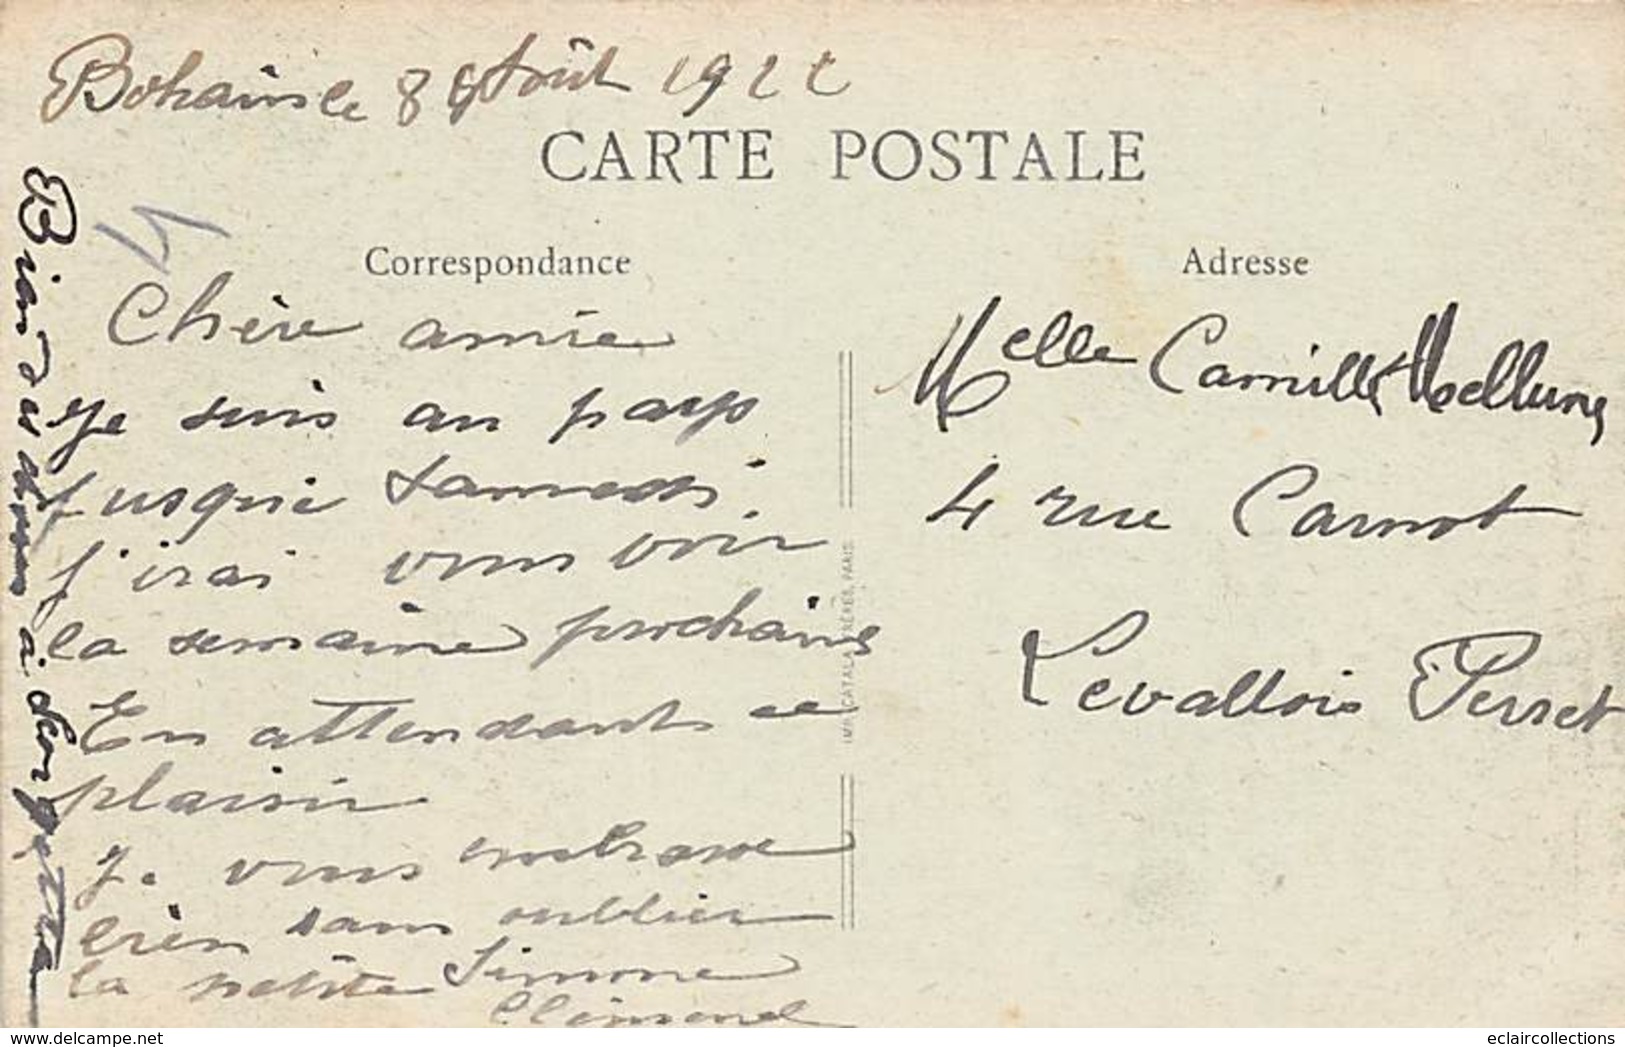 Bohain le 8 Août 1922
CARTE POSTALE
Correspondance
Adresse
Chère amie
Je suis au pays
jusque Samedi.
j'irai vous voir
la semaine prochaine
En attendant ce
plaisir
Je vous embrasse
bien sans oublier
la petite Simone
Bien des choses à
Melle Camille
4 rue Carnot
Levallois Perret
IMP. CATALA FRERES, PARIS
www.delcampe.net
eclaircollections